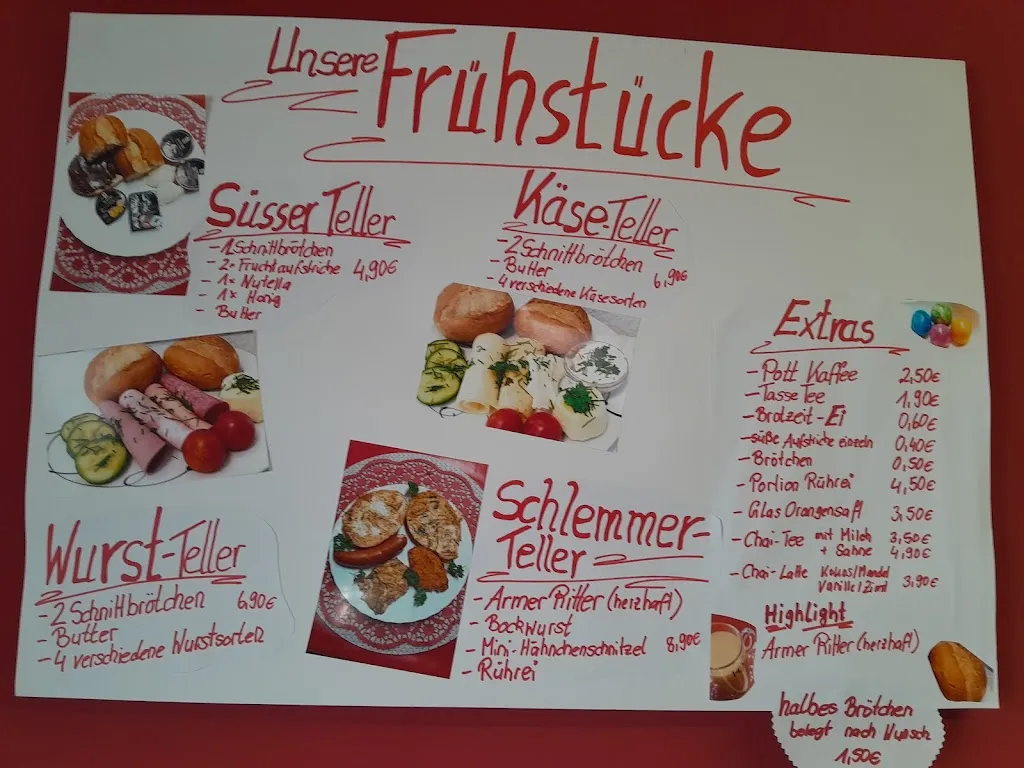 Unsere Frühstücke
Süsser Teller
- 1 Schnittbrötchen
- 2x Fruchtaufstriche 4,90€
- 1x Nutella
- 1x Honig
- Butter
Käse-Teller
- 2 Schnittbrötchen
- Butter 6,90€
- 4 verschiedene Käsesorten
Wurst-Teller
- 2 Schnittbrötchen 6,90€
- Butter
- 4 verschiedene Wurstsorten
Schlemmer-
Teller
- Armer Ritter (herzhaft)
- Bockwurst
- Mini-Hähnchenschnitzel 8,90€
- Rührei
Extras
- Pott Kaffee 2,50€
- Tasse Tee 1,90€
- Brotzeit-Ei 0,60€
- süße Aufstriche einzeln 0,40€
- Brötchen 0,50€
- Portion Rührei 4,50€
- Glas Orangensaft 3,50€
- Chai-Tee mit Milch 3,50€
+ Sahne 4,90€
- Chai-Latte Kokos/Mandel
Vanille/Zimt 3,90€
Highlight
Armer Ritter (herzhaft)
halbes Brötchen
belegt nach Wunsch
1,50€